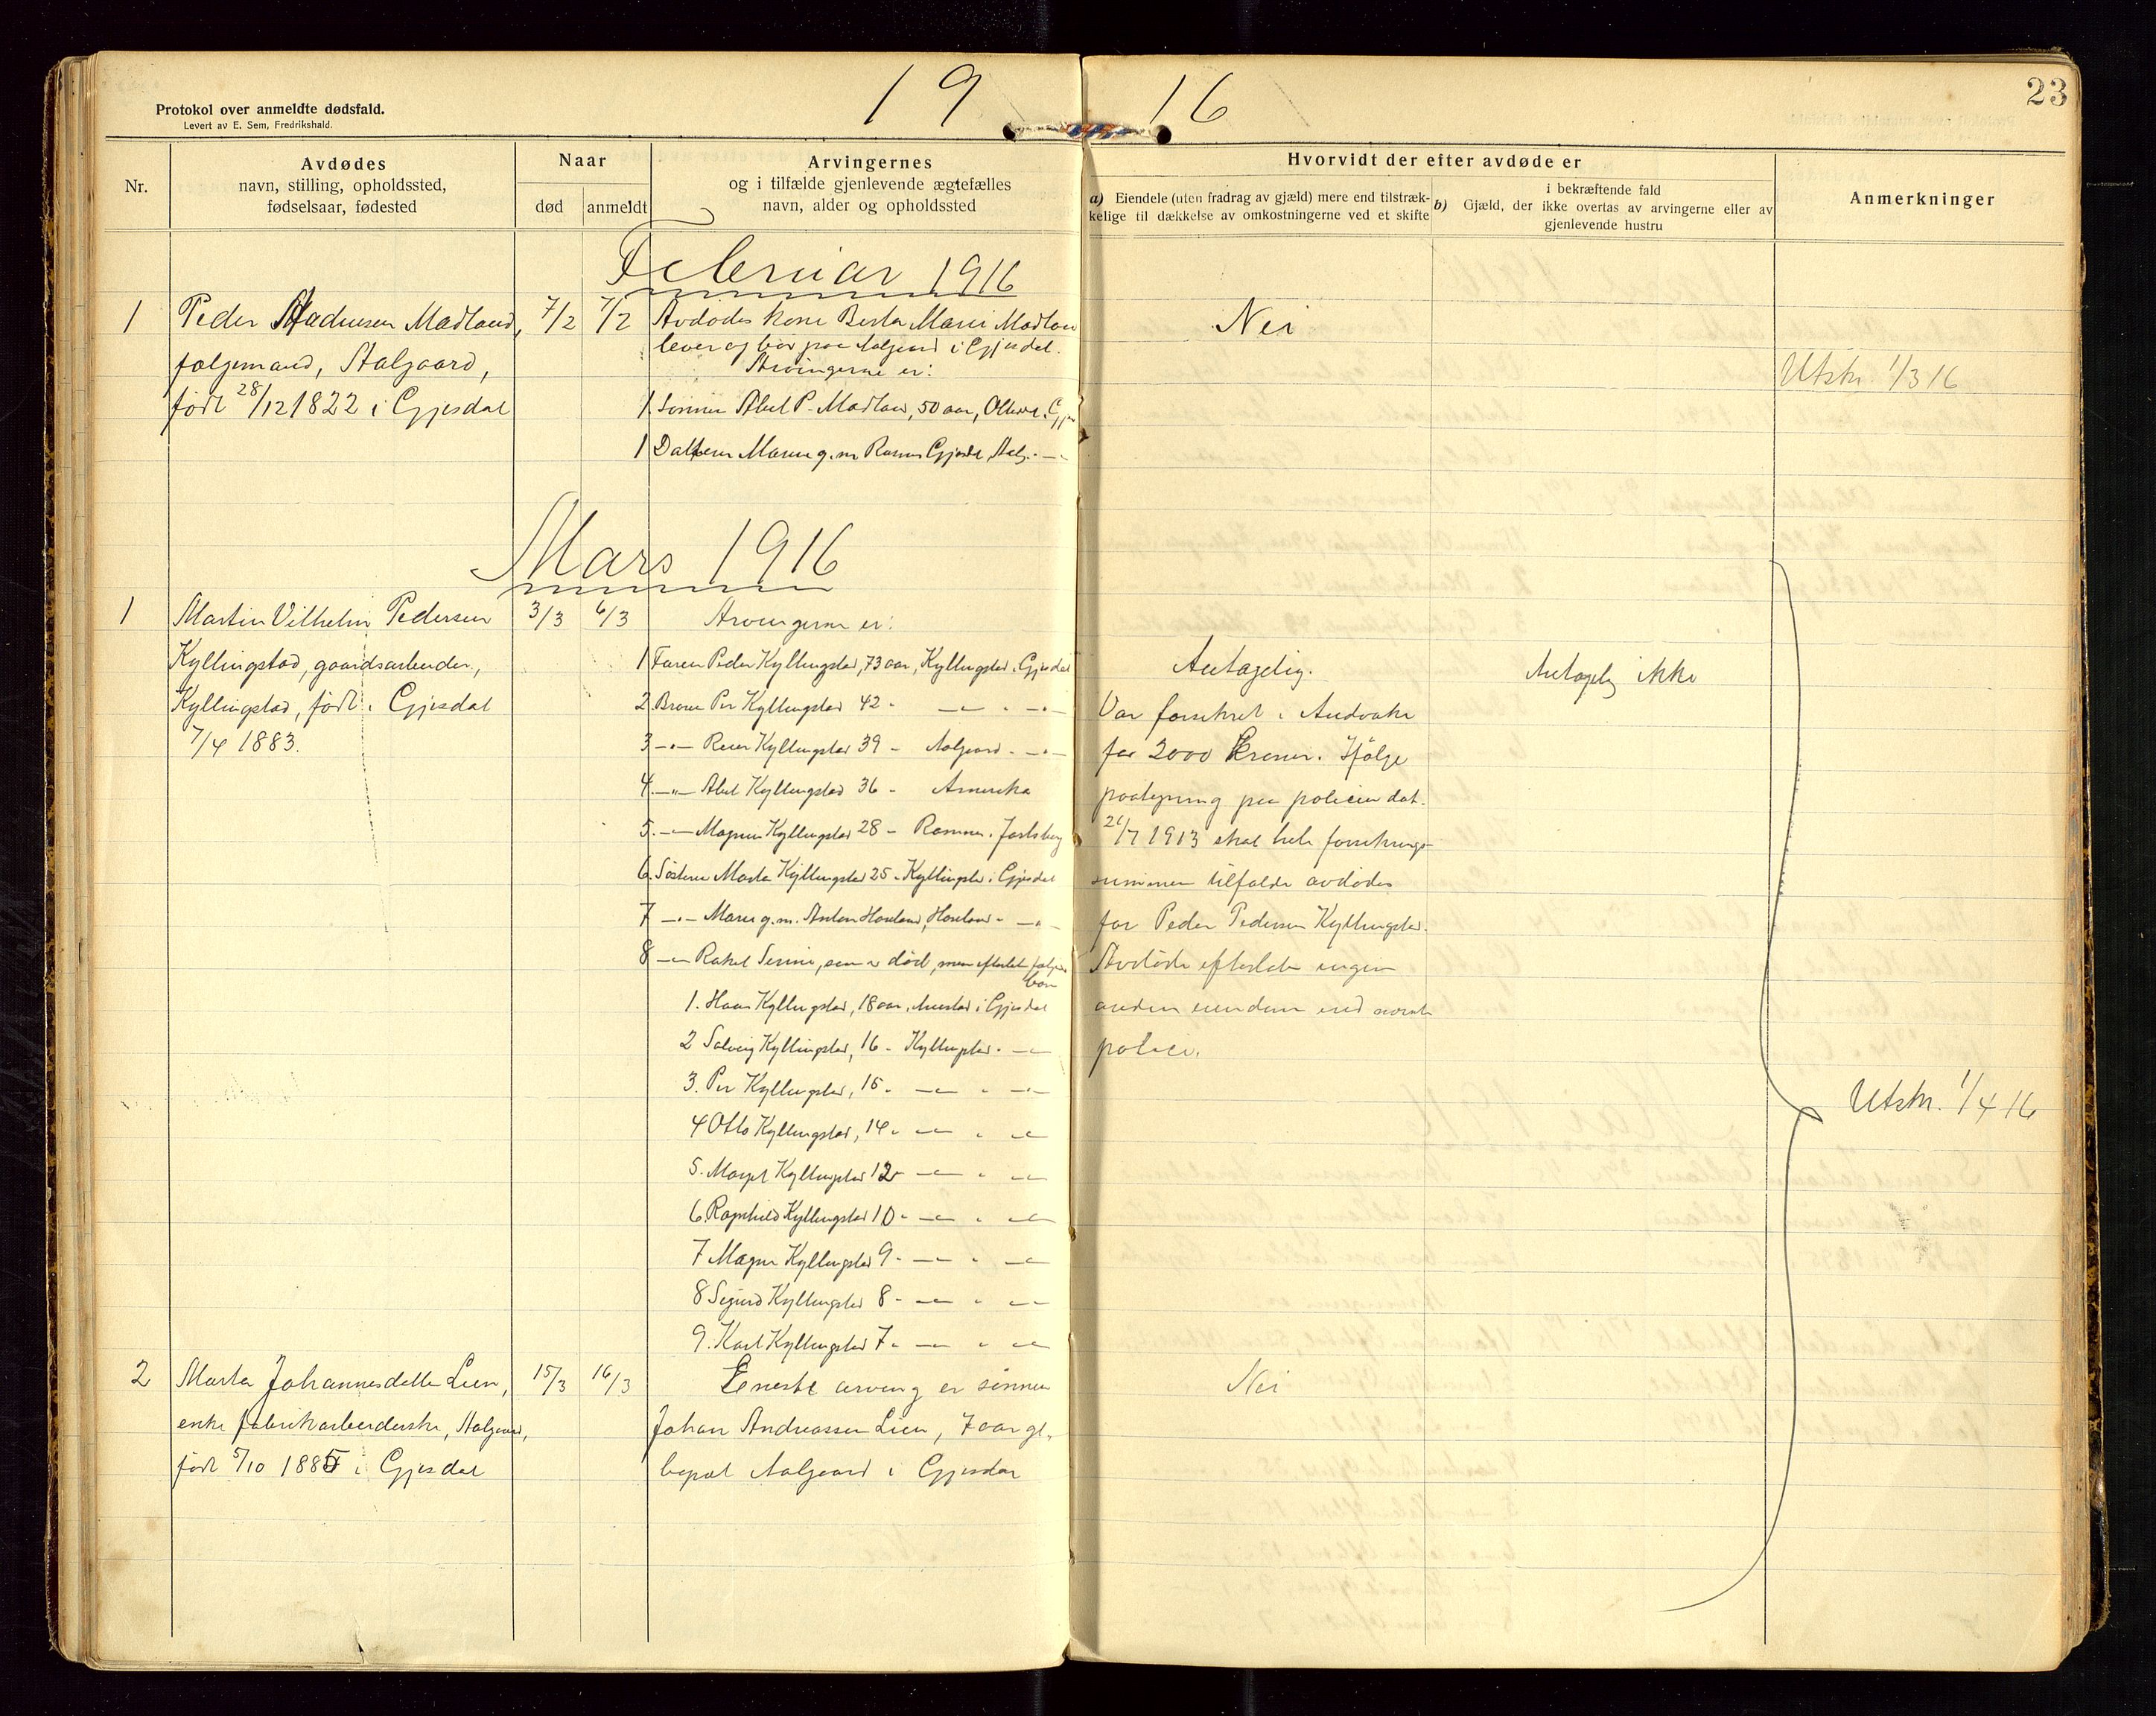 19 16
23
Protokol over anmeldte dødsfald.
Levert av E. Sem, Fredrikshald.
Nr.
Avdødes
navn, stilling, opholdssted,
fødselsaar, fødested
Naar
død
anmeldt
Arvingernes
og i tilfælde gjenlevende ægtefælles
navn, alder og opholdssted
Hvorvidt der efter avdøde er
a) Eiendele (uten fradrag av gjæld) mere end tilstræk-
kelige til dækkelse av omkostningerne ved et skifte
i bekræftende fald
b) Gjæld, der ikke overtas av arvingerne eller av
gjenlevende hustru
Anmerkninger
Februar 1916
1 Peder Madland, 7/2 7/2
folgemand, Aalgaard,
født 28/12 1822 i Gjesdal
Avdødes kone Berta Marie Madland
lever og bor paa Aalgaard i Gjesdal.
Arvingerne er:
1 Sønnen Abel P. Madland, 50 aar,
1 Datteren g.m. Gjesdal, Aalg. — " —
Nei
Utskr. 1/3 16
Mars 1916
1 Martin Vilhelm Pedersen 3/3 6/3
Kyllingstad, gaardsarbeider,
Kyllingstad, født i Gjesdal
7/4 1883.
Arvingerne er:
1 Faren Peder Kyllingstad, 73 aar, Kyllingstad i Gjesdal
2 Broren Per Kyllingstad 42 - — " —
3 — " — Kyllingstad 39 - Aalgaard - — " —
4 — " — Abel Kyllingstad 36 - Amerika
5. — " — Kyllingstad 28 - Ramnes i Jarlsberg
6. Søsteren Marta Kyllingstad 25 - Kyllingstad i Gjesdal
7 — " — g.m. Anton — " —
8 — " — Rakel Serine, som er død, men efterlot følgende
barn
1. Hans Kyllingstad, 18 aar, i Gjesdal
2 Solveig Kyllingstad, 16 - Kyllingstad - — " —
3. Per Kyllingstad, 15 - — " — " — " —
4 Otto Kyllingstad, 14 - — " — " — " —
5. Margit Kyllingstad 12 - — " — " — " —
6. Ragnhild Kyllingstad 10 - — " — " — " —
7 Kyllingstad 9 - — " — " — " —
8 Sigurd Kyllingstad 8 - — " — " — " —
9. Karl Kyllingstad 7 - — " — " — " —
Antagelig.
Var forsikret i Andvake
for 2000 kroner. Ifølge
paategning paa policen dat.
/7 1913 skal hele forsikrings-
summen tilfalde avdødes
far Peder Pedersen Kyllingstad.
Avdøde efterlot ingen
anden eiendom end nævnte
police.
Antagelig ikke
Utskr. 1/4 16
2 Marta Johannesdatter Lien, 15/3 16/3
enke fabrikarbeiderske, Aalgaard,
født 5/10 1885 i Gjesdal
Eneste arving er sønnen
Johan Andreassen Lien, 7 aar gl.
bopæl Aalgaard i Gjesdal
Nei